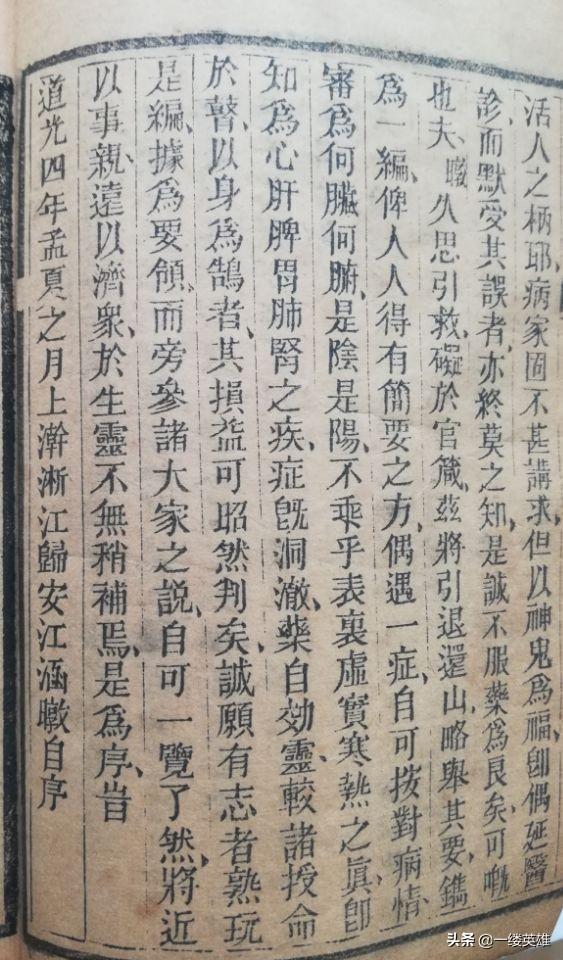 活人之柄耶、病家固不甚講求、但以神鬼爲福、卽偶延醫
診、而默受其誤者、亦終莫之知、是誠不服藥爲良矣、可嘅
也夫、暾久思引救、礙於官箴、茲將引退還山、略舉其要、鐫
爲一編、俾人人得有簡要之方、偶遇一症、自可按對病情、
審爲何臟何腑、是陰是陽、不乘乎表裏虛實寒熱之眞、卽
知爲心肝脾胃肺腎之疾、症旣洞澈、藥自効靈、較諸授命
於瞽、以身爲鵠者、其損益可昭然判矣、誠願有志者熟玩
是編、據爲要領、而旁參諸大家之說、自可一覽了然、將近
以事親、遠以濟衆、於生靈不無稍補焉、是爲序、旹
道光四年孟夏之月上澣淅江歸安江涵暾自序
头条 @一缕英雄